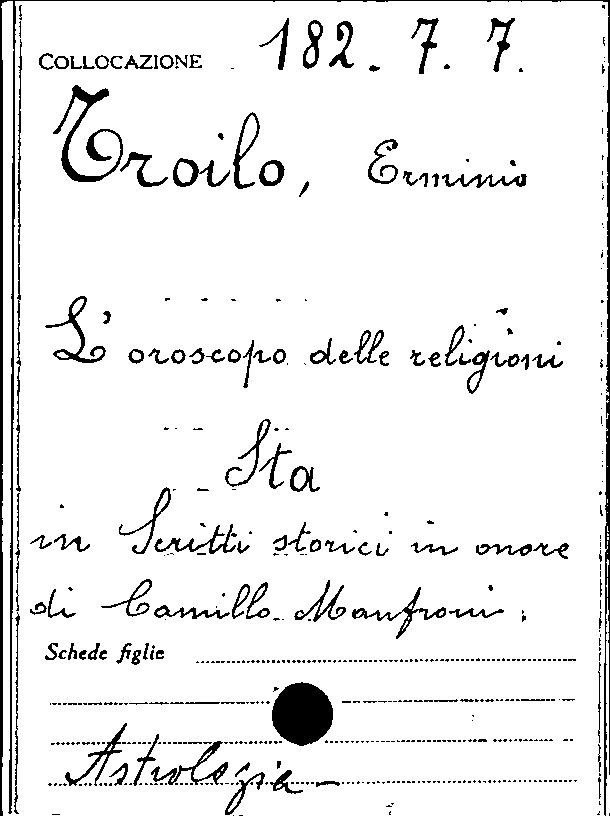 COLLOCAZIONE 182. 7. 7.
Troilo, Erminio
L'oroscopo delle religioni
Sta
in Scritti storici in onore
di Camillo Manfroni.
Schede figlie
Astrologia -